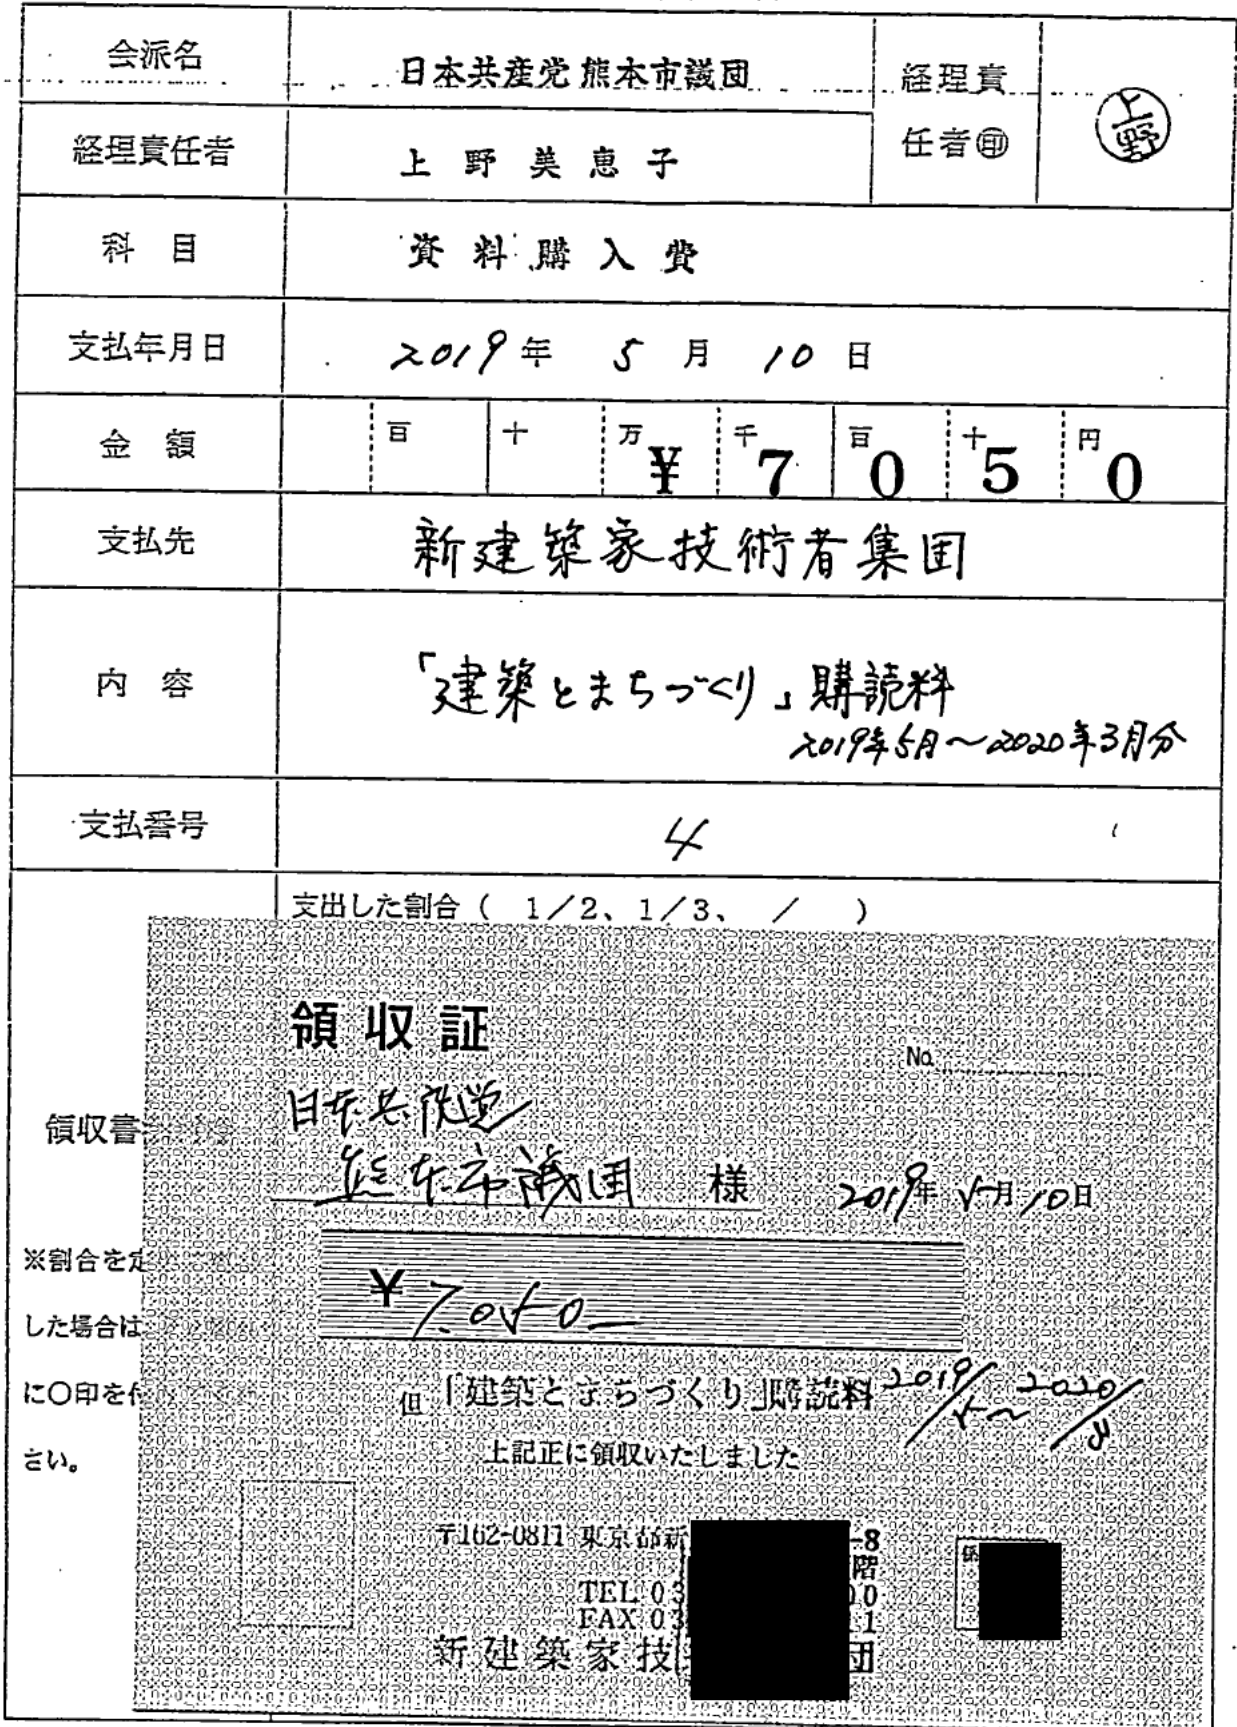 会派名 日本共産党 熊本市議団 経理責任者㊞ 上野
経理責任者 上野美恵子
科目 資料購入費
支払年月日 2019年 5月 10日
金額 百 十 万¥ 千7 百0 十5 円0
支払先 新建築家技術者集団
内容 「建築とまちづくり」購読料
2019年5月～2020年3月分
支払番号 4
支出した割合( 1/2、1/3、 / )
領収証
No.
日本共産党
領収書
熊本市議団 様 2019年 5月 10日
※割合を定
¥7,050-
した場合は
に○印を付
但「建築とまちづくり」購読料 2019/5～2020/3
さい。
上記正に領収いたしました
〒162-0811 東京都新 -8
階
係
TEL 03 00
FAX 03 11
新建築家技 団